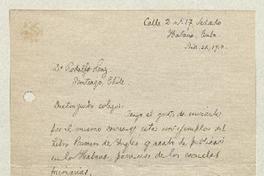 Calle 2 nº 17 Vedado
Habana, Cuba
Dr Rodolfo Lenz
Santiago, Chile.
Distinguido colega:
Tengo el gusto de enviarle
por el mismo correo seis ejemplares del
libro Primero de Inglés que acabo de publicar
en la Habana, para uso de las escuelas
primarias.